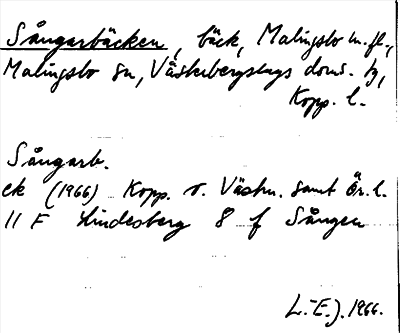 Sångarbäcken, bäck, Malingsbo m.fl.,
Malingsbo sn, Västerbergslags doms. tg,
Kopp. l.
Sångarb.
ek (1966) Kopp. o. Västm. samt Ör. l.
11 F Lindesberg 8 f Sången
L.-E.J. 1966.